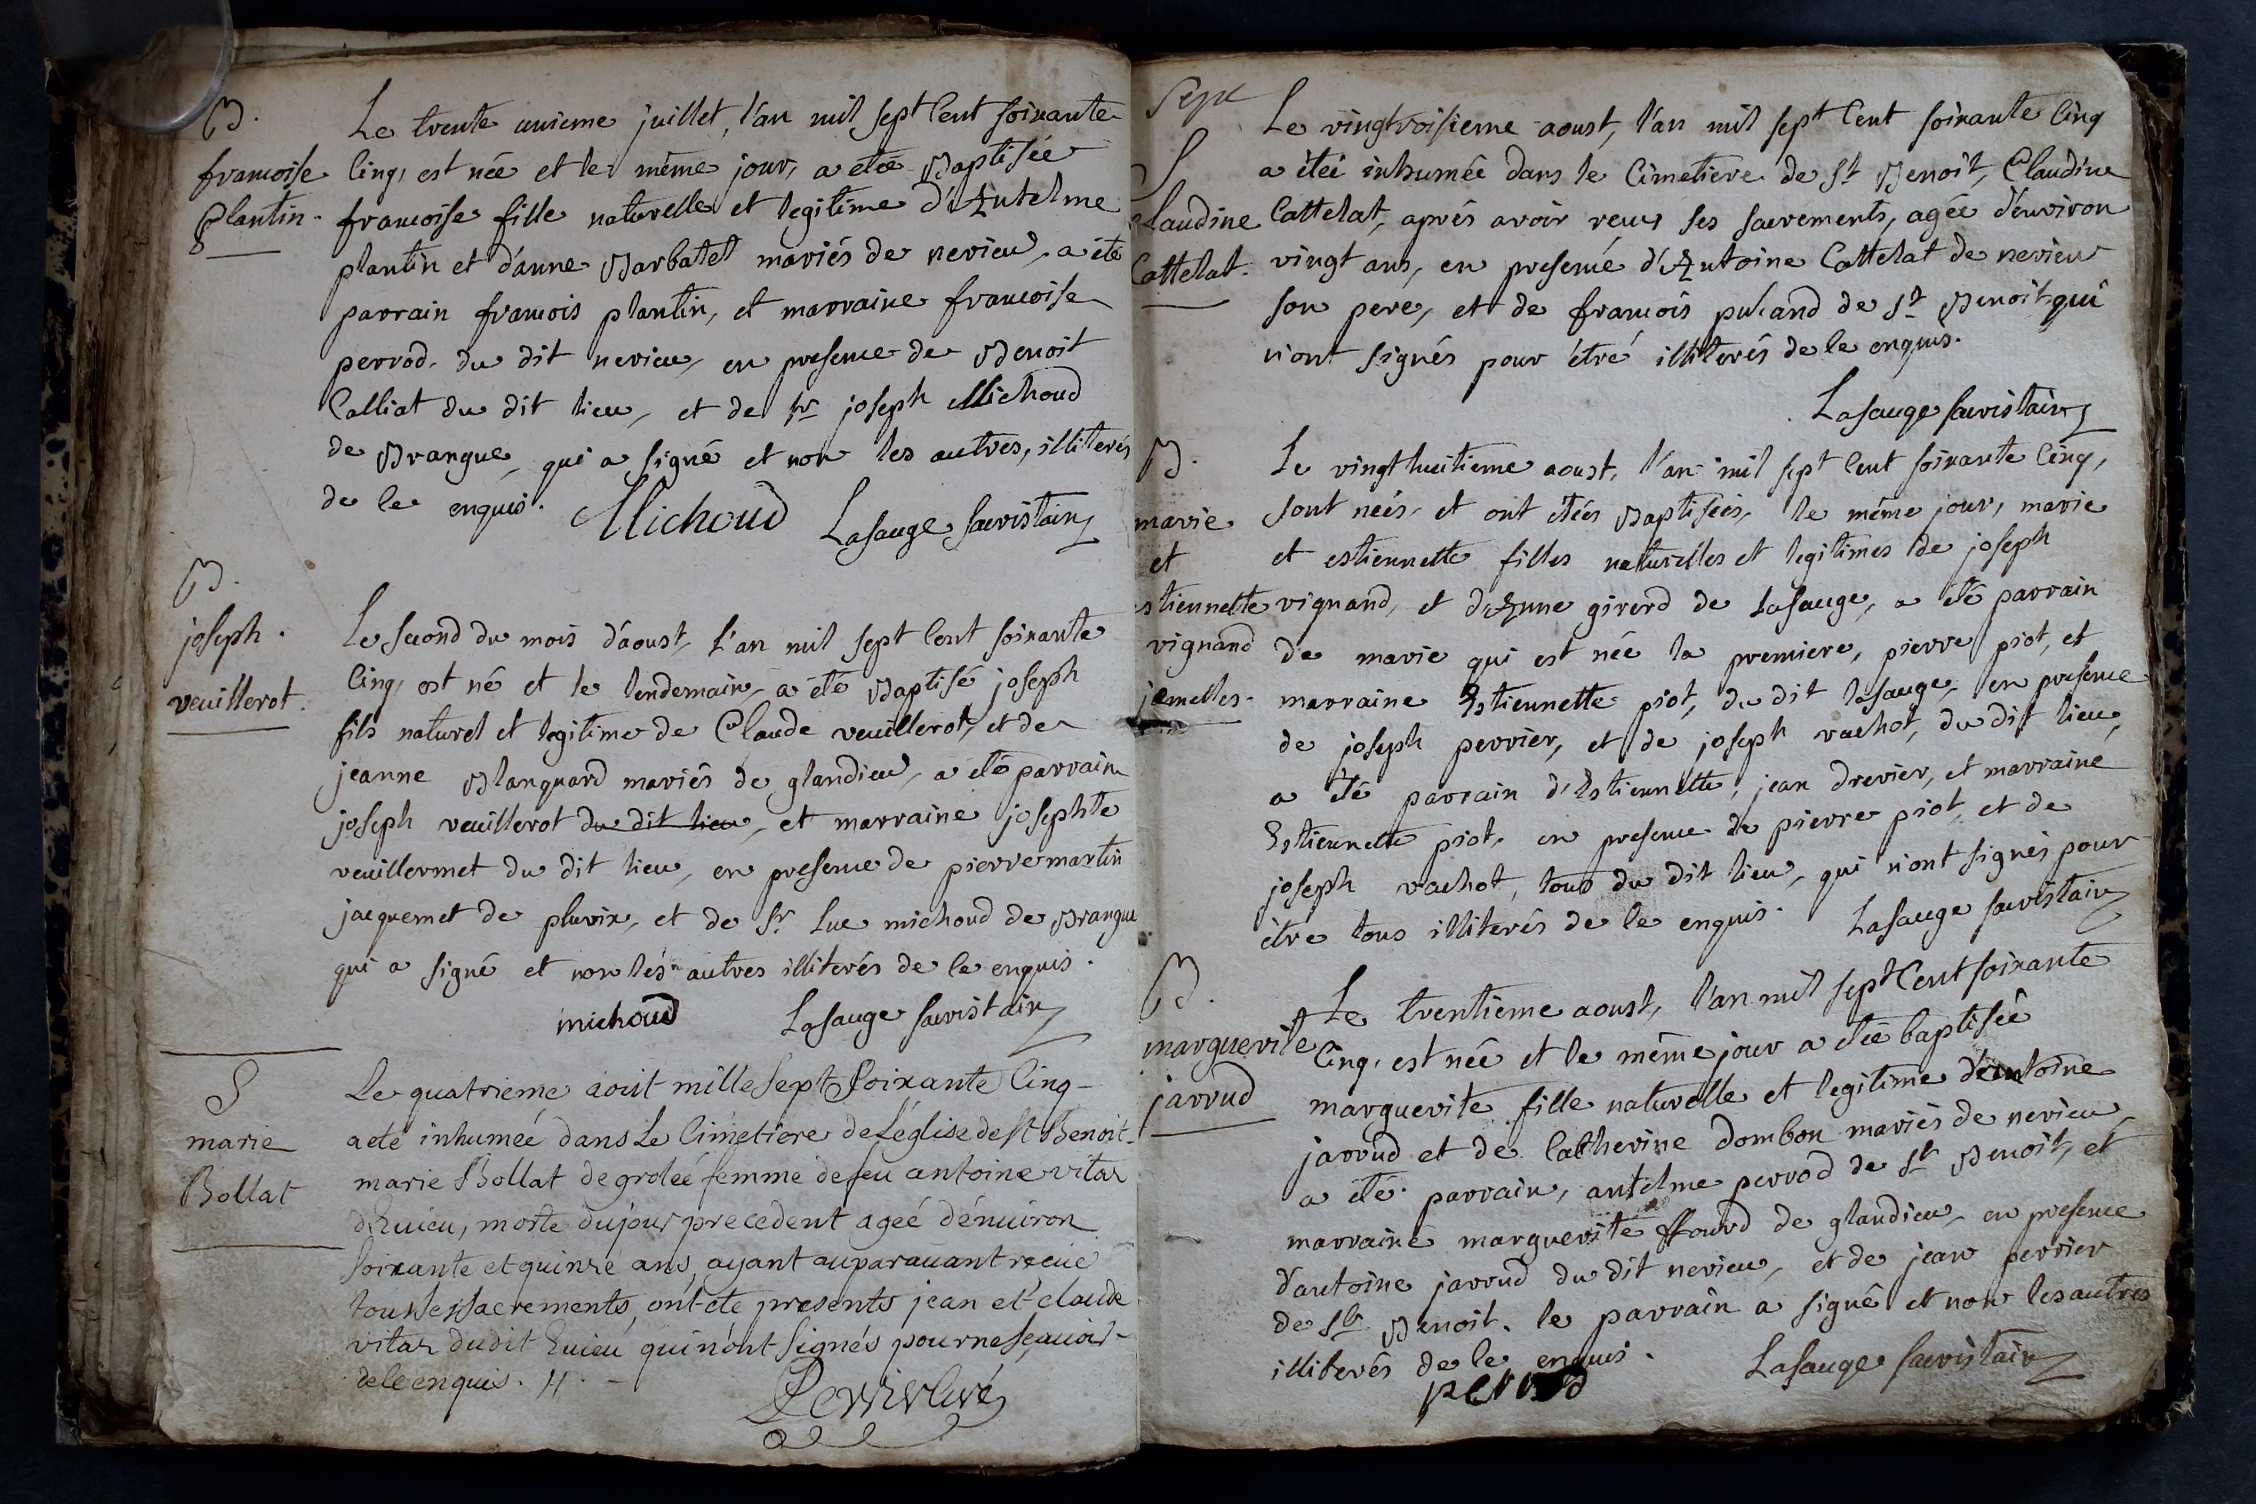 B.
francoise
plantin.
Le trente unieme juillet, l'an mil sept Cent soixante
Cinq, est née et le même jour, a etée Baptisée
francoise fille naturelle et legitime d'Antelme
plantin et d'anne Barbatel mariés de nevieu, a été
parrain francois plantin, et marraine francoise
perrod. du dit nevieu, en presence de Benoit
Calliat du dit lieu, et de sr joseph Michoud
de Brangue, qui a signé et non les autres, illiterés
de ce enquis.
Michoud Lasauge sacristain
B.
joseph.
veuillerot.
Le second du mois d'aoust, l'an mil sept Cent soixante
Cinq, est né et le lendemain, a été Baptisé joseph
fils naturel et legitime de Claude veuillerot, et de
jeanne Blanquard mariés de glandieu, a été parrain
joseph veuillerot du dit lieu, et marraine josephte
veuillermet du dit lieu, en presence de pierre martin
jacquemet de pluvix, et de sr. Luc michoud de Brangue
qui a signé et non les autres illiterés de ce enquis.
michoud Lasauge sacristain
S
marie
Bollat
Le quatrieme aoüt mille sept Soixante Cinq
a eté inhumeé dans Le Cimetiere de L'église de St Benoit
marie Bollat de groleé femme de feu antoine vitoz
d'Evieu, morte du jour precedent ageé d'énuiron
soixante et quinze ans, ayant auparauant recue
tous les sacrements, ont eté presents jean et claude
vitoz dudit Evieu qui n'ont Signés pour ne sçauoir
de ce enquis. //.
Perrin Curé
Sepre
S
Claudine
Cattelat.
Le vingtroisieme aoust, l'an mil sept Cent soixante Cinq
a étéé inhumée dans le Cimetiere de St Benoit, Claudine
Cattelat, aprés avoir recus ses sacrements, agée d'environ
vingt ans, en presence d'Antoine Cattelat de nevieu
son pere, et de francois pulcand de St Benoit qui
n'ont signés pour étre illiterés de ce enquis.
Lasauge sacristain
B.
marie
et
estiennette
vignand
jemelles.
Le vingt huitieme aoust, l'an mil sept Cent soixante Cinq,
sont neés, et ont etées Baptisées, le même jour, marie
et estiennette filles naturelles et legitimes de joseph
vignand, et d'Anne girerd de Lasauge, a été parrain
de marie qui est née la premiere, pierre piot, et
marraine Estiennette piot, du dit lasauge, en presence
de joseph perrier, et de joseph vachot, du dit lieu,
a été parrain d'Estiennette, jean drevier, et marraine
Estiennette piot, en presence de pierre piot, et de
joseph vachot, tous du dit lieu, qui n'ont signés pour
étre tous illiterés de ce enquis. Lasauge sacristain
B.
marguerite
jarrud
Le trentieme aoust, l'an mil sept Cent soixante
Cinq, est née et le même jour a etée baptisée
marguerite fille naturelle et legitime d'antoine
jarrud et de Catherine dombon mariés de nevieu
a été parrain, antelme perrod de St Benoit, et
marraine marguerite ffourd de glandieu, en presence
d'antoine jarrud du dit nevieu, et de jean perrier
de St. Benoit. le parrain a signé et non les autres
illiterés de ce enquis. Lasauge sacristain
perrod